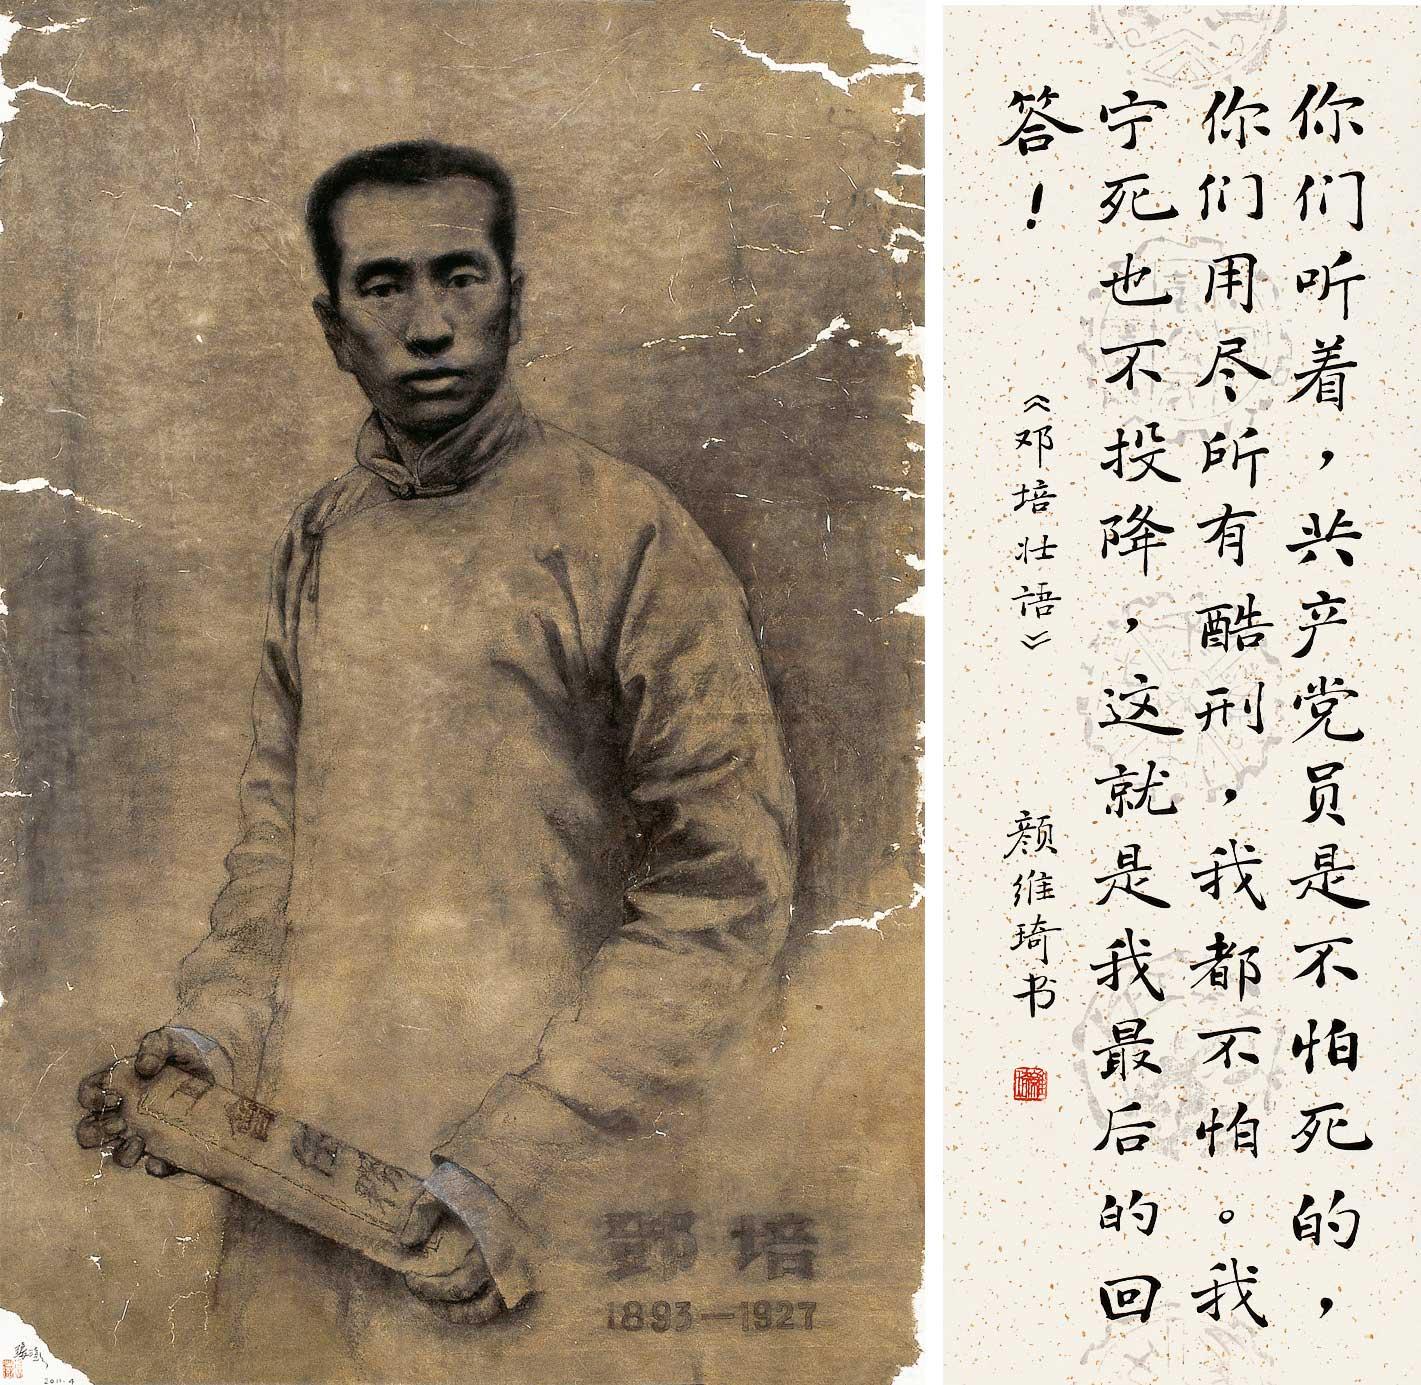 鄧培
1893—1927
2011.4
你们听着，共产党员是不怕死的，
你们用尽所有酷刑，我都不怕。我
宁死也不投降，这就是我最后的回
答！
《邓培壮语》
颜维琦书